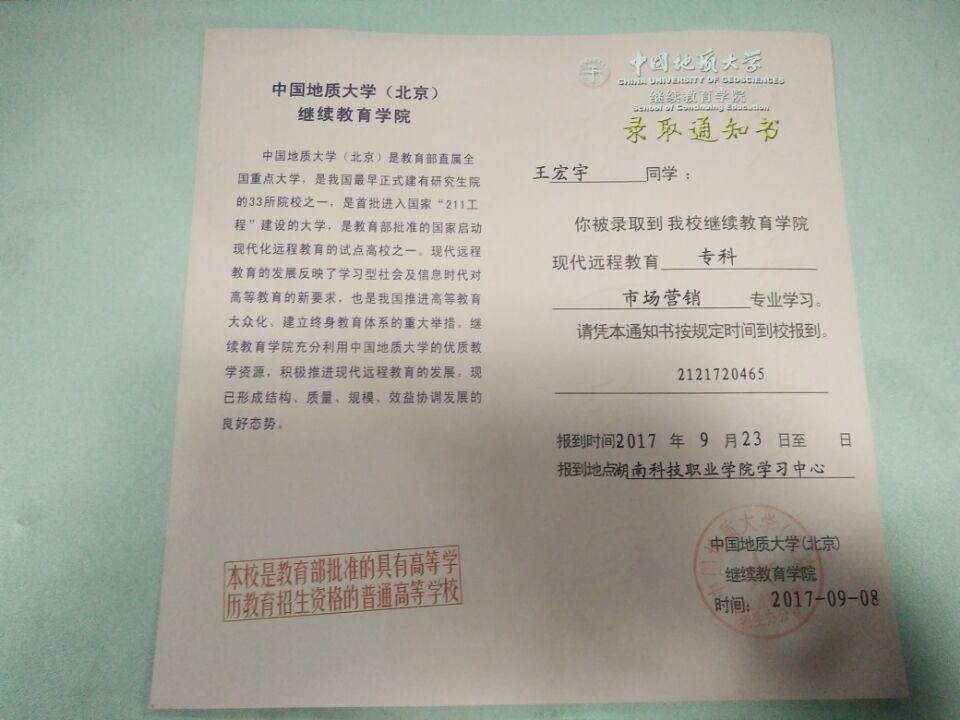 中国地质大学（北京）
继续教育学院
中国地质大学（北京）是教育部直属全
国重点大学，是我国最早正式建有研究生院
的33所院校之一，是首批进入国家“211工
程”建设的大学，是教育部批准的国家启动
现代化远程教育的试点高校之一。现代远程
教育的发展反映了学习型社会及信息时代对
高等教育的新要求，也是我国推进高等教育
大众化、建立终身教育体系的重大举措。继
续教育学院充分利用中国地质大学的优质教
学资源，积极推进现代远程教育的发展。现
已形成结构、质量、规模、效益协调发展的
良好态势。
本校是教育部批准的具有高等学
历教育招生资格的普通高等学校
中国地质大学
CHINA UNIVERSITY OF GEOSCIENCES
继续教育学院
School of Continuing Education
录取通知书
王宏宇 同学：
你被录取到我校继续教育学院
现代远程教育 专科
市场营销 专业学习。
请凭本通知书按规定时间到校报到。
2121720465
报到时间2017 年 9 月23 日至 日
报到地点湖南科技职业学院学习中心
中国地质大学(北京)
继续教育学院
时间：2017-09-08